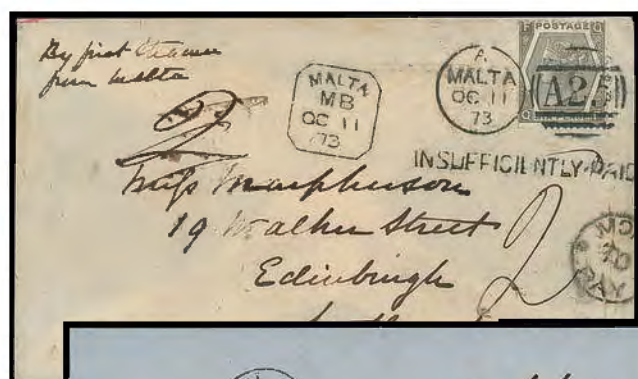 POSTAGE
By first Steamer
from Malta
MALTA
MB
OC 11
73
A
MALTA
OC 11
73
A25
INSUFFICIENTLY-PAID
2
Miss Macpherson
19 Walker Street
Edinburgh
2